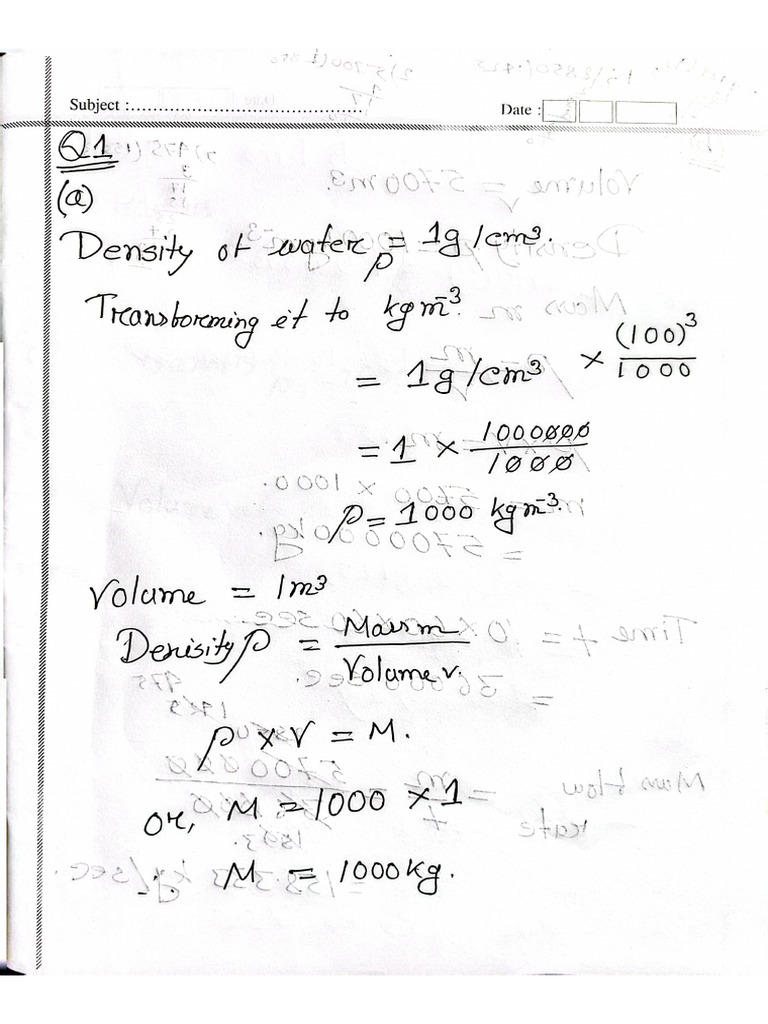 Subject :........................................ Date :
Q1
(a)
Density of water ρ = 1g/cm³.
Transforming it to kgm⁻³.
= 1g/cm³ × (100)³/1000
= 1 × 1000000/1000
ρ = 1000 kgm⁻³.
Volume = 1m³
Denisity ρ = Mass m/Volume v.
ρ × V = M.
or, M = 1000 × 1
M = 1000kg.